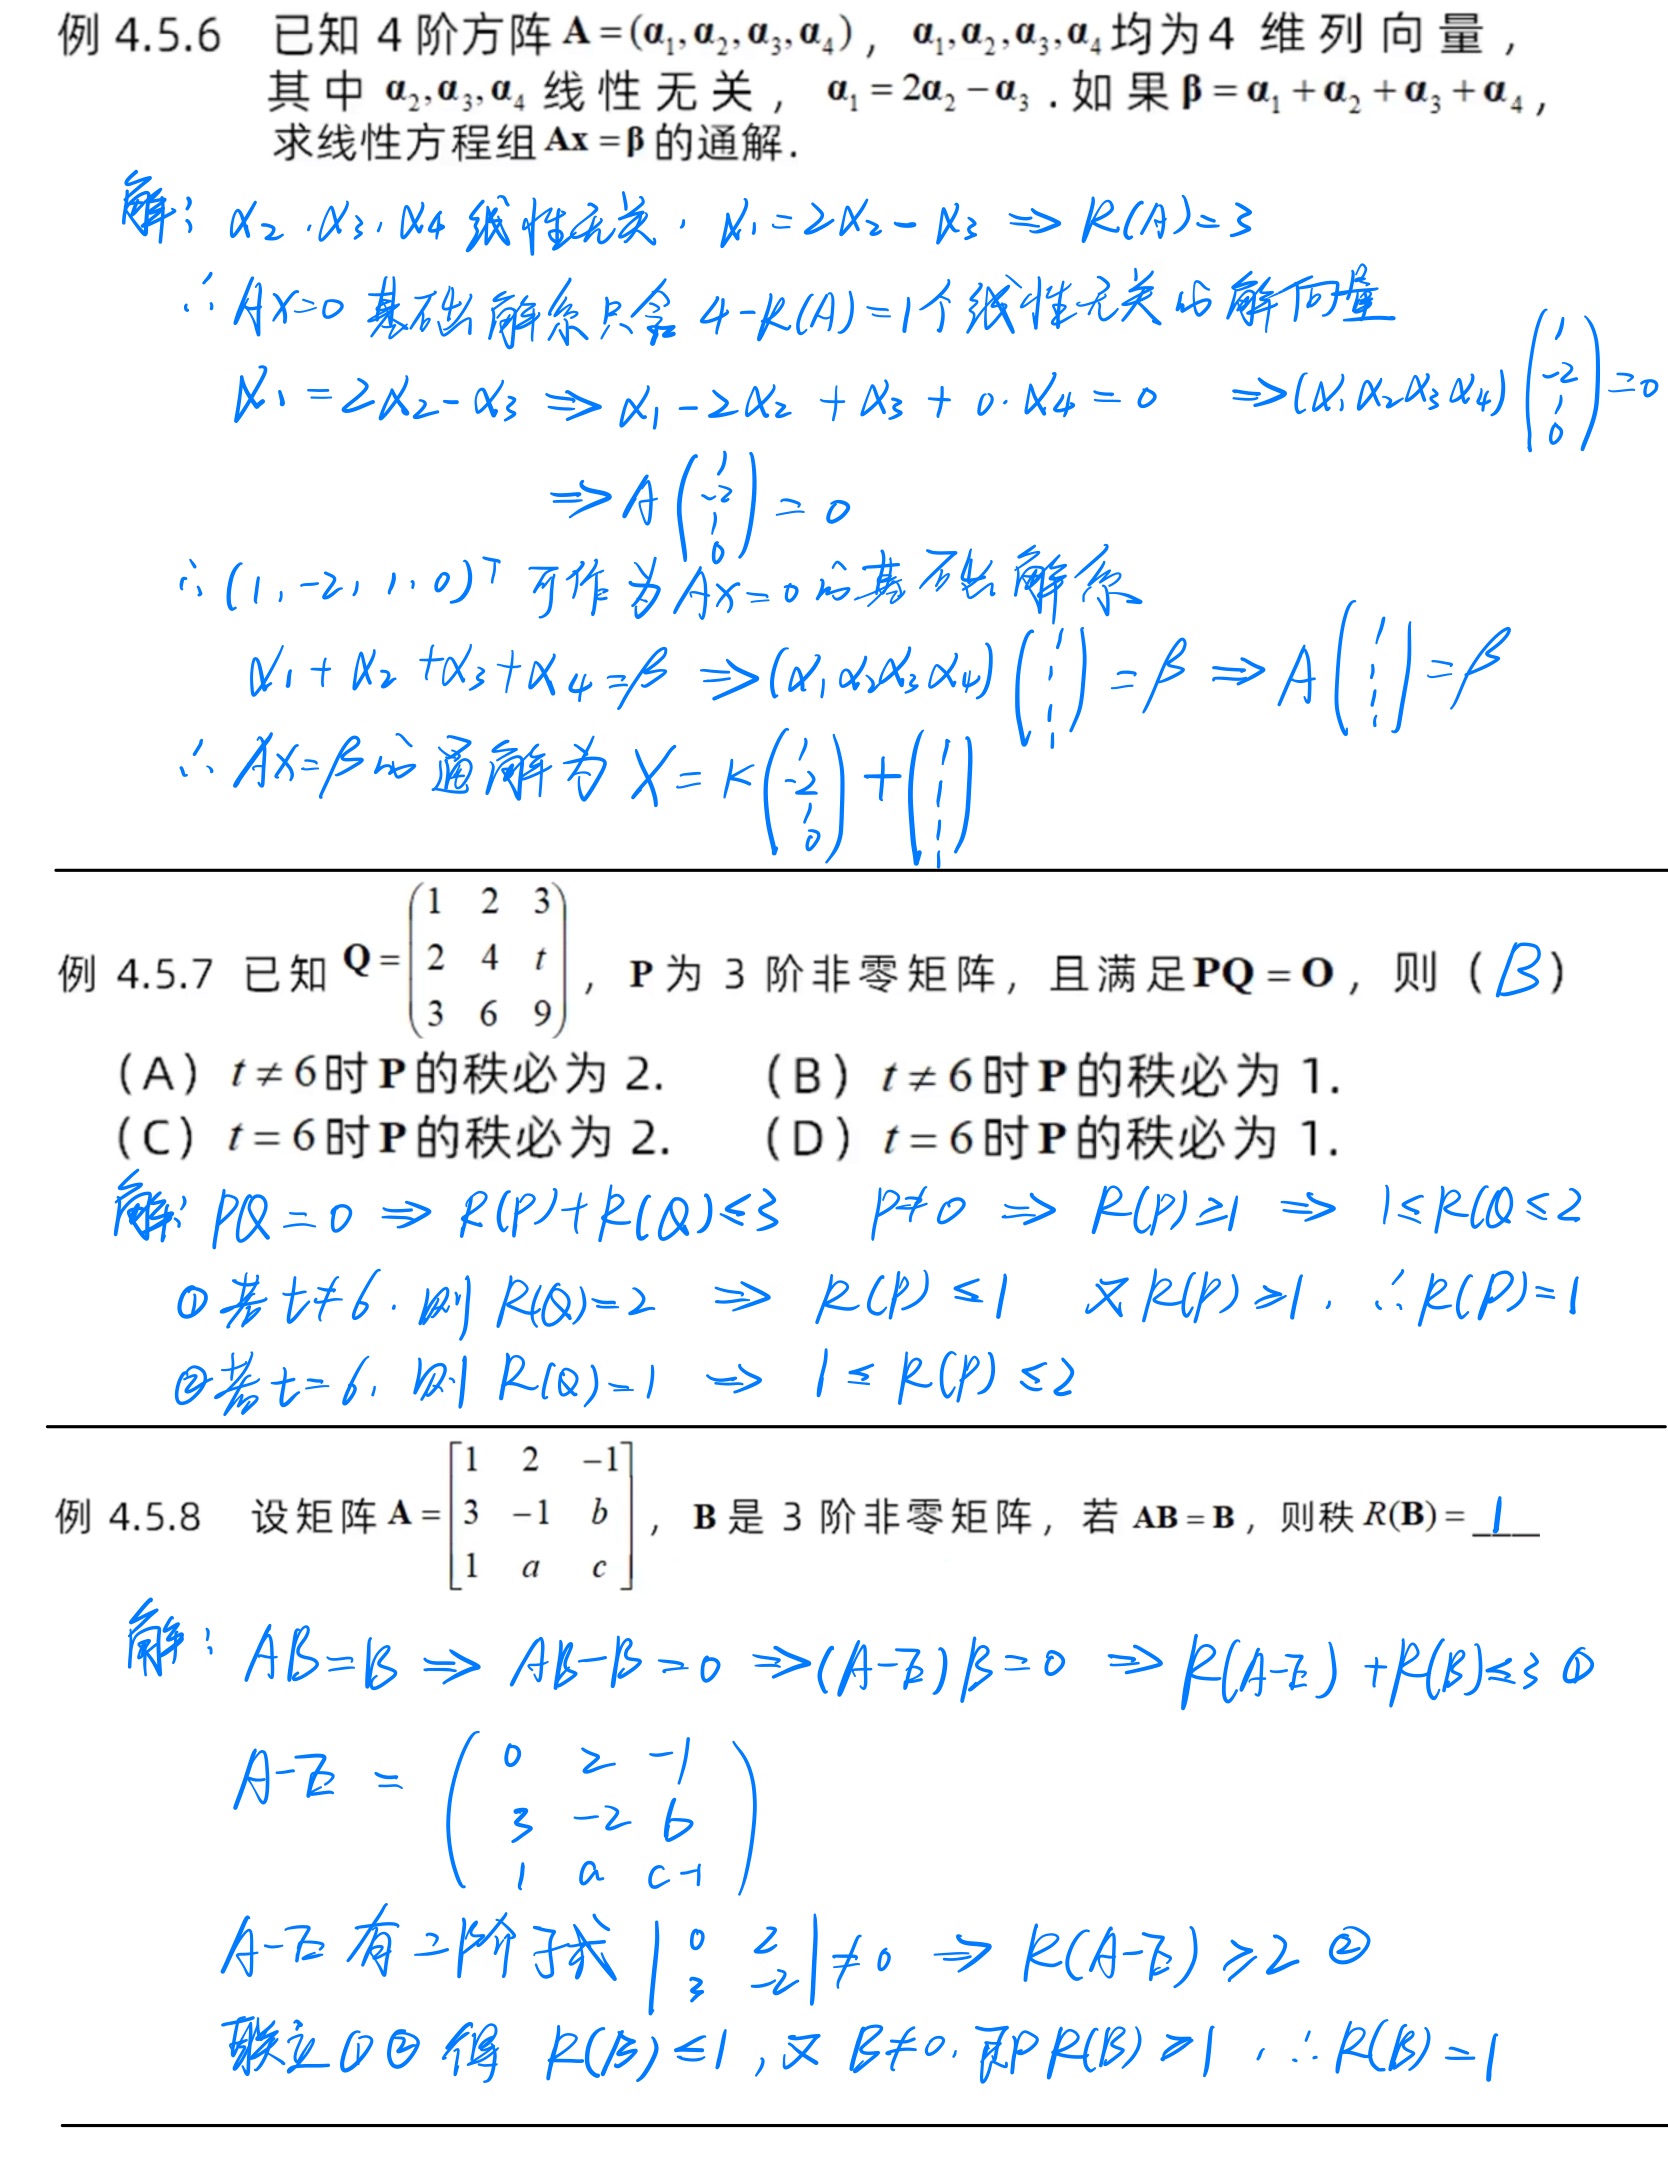 例 4.5.6 已知 4 阶方阵 A = (α₁, α₂, α₃, α₄), α₁, α₂, α₃, α₄ 均为 4 维列向量,
其中 α₂, α₃, α₄ 线性无关, α₁ = 2α₂ − α₃ . 如果 β = α₁ + α₂ + α₃ + α₄,
求线性方程组 Ax = β 的通解.
解: α₂, α₃, α₄ 线性无关, α₁ = 2α₂ − α₃ ⇒ R(A) = 3
∴ AX=0 基础解系只含 4−R(A)=1个线性无关的解向量
α₁ = 2α₂ − α₃ ⇒ α₁ − 2α₂ + α₃ + 0·α₄ = 0 ⇒ (α₁ α₂ α₃ α₄) (1 −2 1 0) = 0
⇒ A (1 −2 1 0) = 0
∴ (1, −2, 1, 0)ᵀ 可作为 AX=0 的基础解系
α₁ + α₂ + α₃ + α₄ = β ⇒ (α₁ α₂ α₃ α₄) (1 1 1 1) = β ⇒ A (1 1 1 1) = β
∴ AX=β 的通解为 X = K (1 −2 1 0) + (1 1 1 1)
例 4.5.7 已知 Q = (1 2 3
2 4 t
3 6 9) , P 为 3 阶非零矩阵, 且满足 PQ = O, 则 ( B )
(A) t ≠ 6 时 P 的秩必为 2. (B) t ≠ 6 时 P 的秩必为 1.
(C) t = 6 时 P 的秩必为 2. (D) t = 6 时 P 的秩必为 1.
解: PQ = 0 ⇒ R(P)+R(Q) ≤ 3 P≠0 ⇒ R(P) ≥ 1 ⇒ 1 ≤ R(Q ≤ 2
① 若 t≠6. 则 R(Q)=2 ⇒ R(P) ≤ 1 又 R(P) ≥ 1, ∴ R(P) = 1
② 若 t=6, 则 R(Q)=1 ⇒ 1 ≤ R(P) ≤ 2
例 4.5.8 设矩阵 A = [1 2 −1
3 −1 b
1 a c] , B 是 3 阶非零矩阵, 若 AB = B, 则秩 R(B) = 1
解: AB=B ⇒ AB−B=0 ⇒ (A−E)B=0 ⇒ R(A−E)+R(B)≤3 ①
A−E = (0 2 −1
3 −2 b
1 a c−1)
A−E 有二阶子式 |0 2
3 −2| ≠ 0 ⇒ R(A−E) ≥ 2 ②
联立①②得 R(B) ≤ 1, 又 B≠0, 即 R(B) ≥ 1, ∴ R(B) = 1